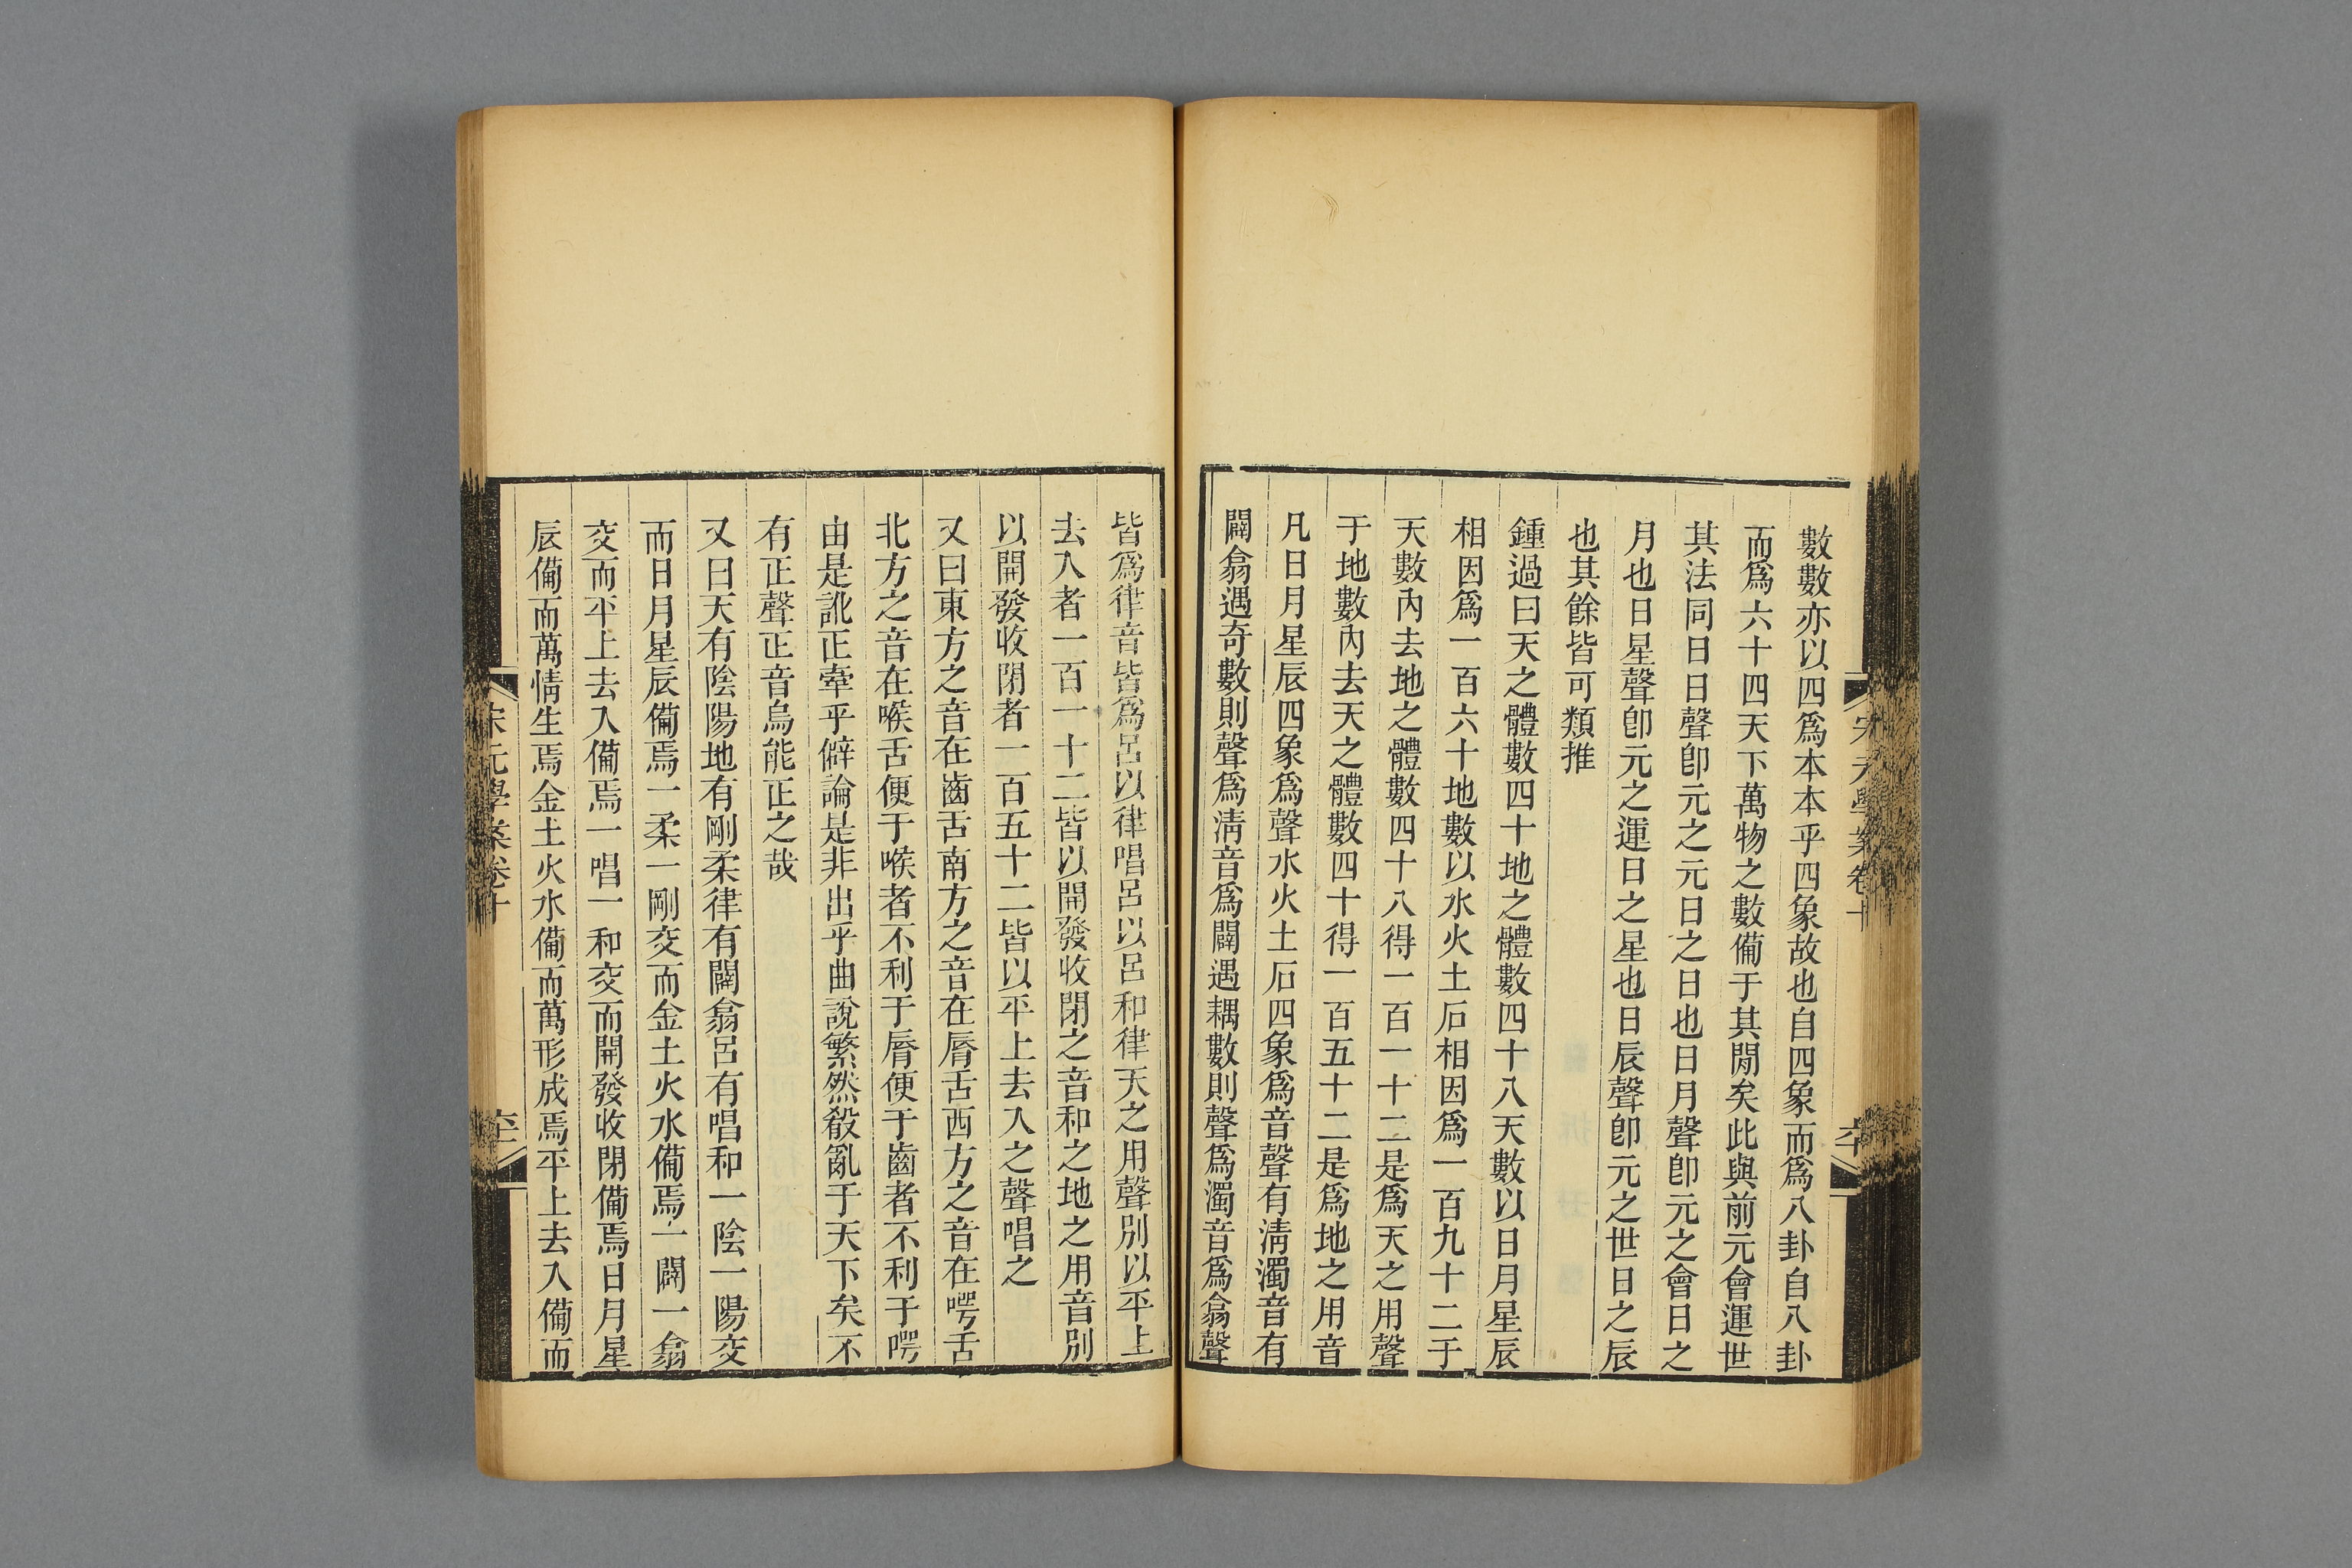 數數亦以四爲本本乎四象故也自四象而爲八卦自八卦
而爲六十四天下萬物之數備于其閒矣此與前元會運世
其法同日日聲卽元之元日之日也日月聲卽元之會日之
月也日星聲卽元之運日之星也日辰聲卽元之世日之辰
也其餘皆可類推
鍾過曰天之體數四十地之體數四十八天數以日月星辰
相因爲一百六十地數以水火土石相因爲一百九十二于
天數內去地之體數四十八得一百一十二是爲天之用聲
于地數內去天之體數四十得一百五十二是爲地之用音
凡日月星辰四象爲聲水火土石四象爲音聲有淸濁音有
闢翕遇奇數則聲爲淸音爲闢遇耦數則聲爲濁音爲翕聲
宋元學案卷十
皆爲律音皆爲呂以律唱呂以呂和律天之用聲別以平上
去入者一百一十二皆以開發收閉之音和之地之用音別
以開發收閉者一百五十二皆以平上去入之聲唱之
又曰東方之音在齒舌南方之音在脣舌西方之音在㗁舌
北方之音在喉舌便于喉者不利于脣便于齒者不利于㗁
由是訛正牽乎僻論是非出乎曲說繁然殽亂于天下矣不
有正聲正音烏能正之哉
又曰天有陰陽地有剛柔律有闢翕呂有唱和一陰一陽交
而日月星辰備焉一柔一剛交而金土火水備焉一闢一翕
交而平上去入備焉一唱一和交而開發收閉備焉日月星
辰備而萬情生焉金土火水備而萬形成焉平上去入備而
宋元學案卷十